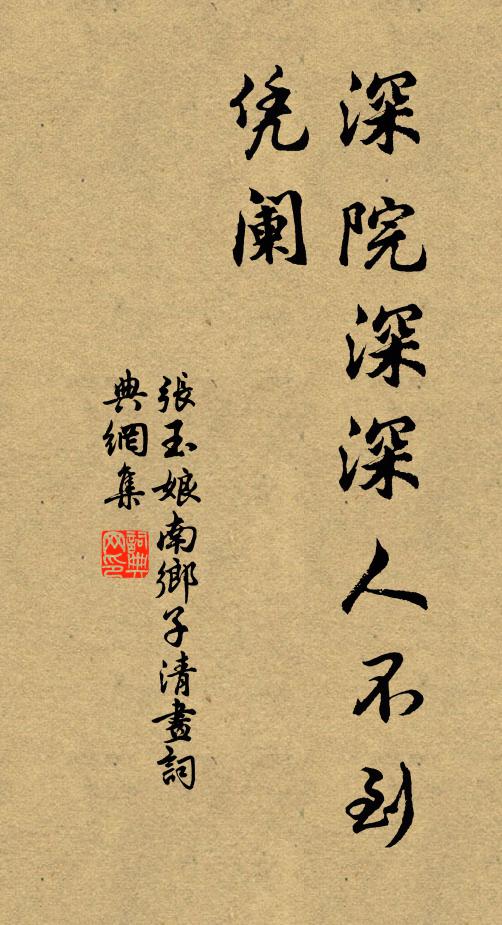 深院深深人不到
凭阑
張玉娘南鄉子清晝詞
典網集
詞典
网印